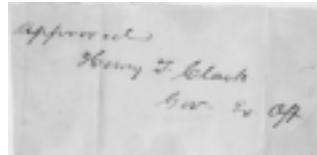 Approved
Henry T. Clark
Gov. Ex Off